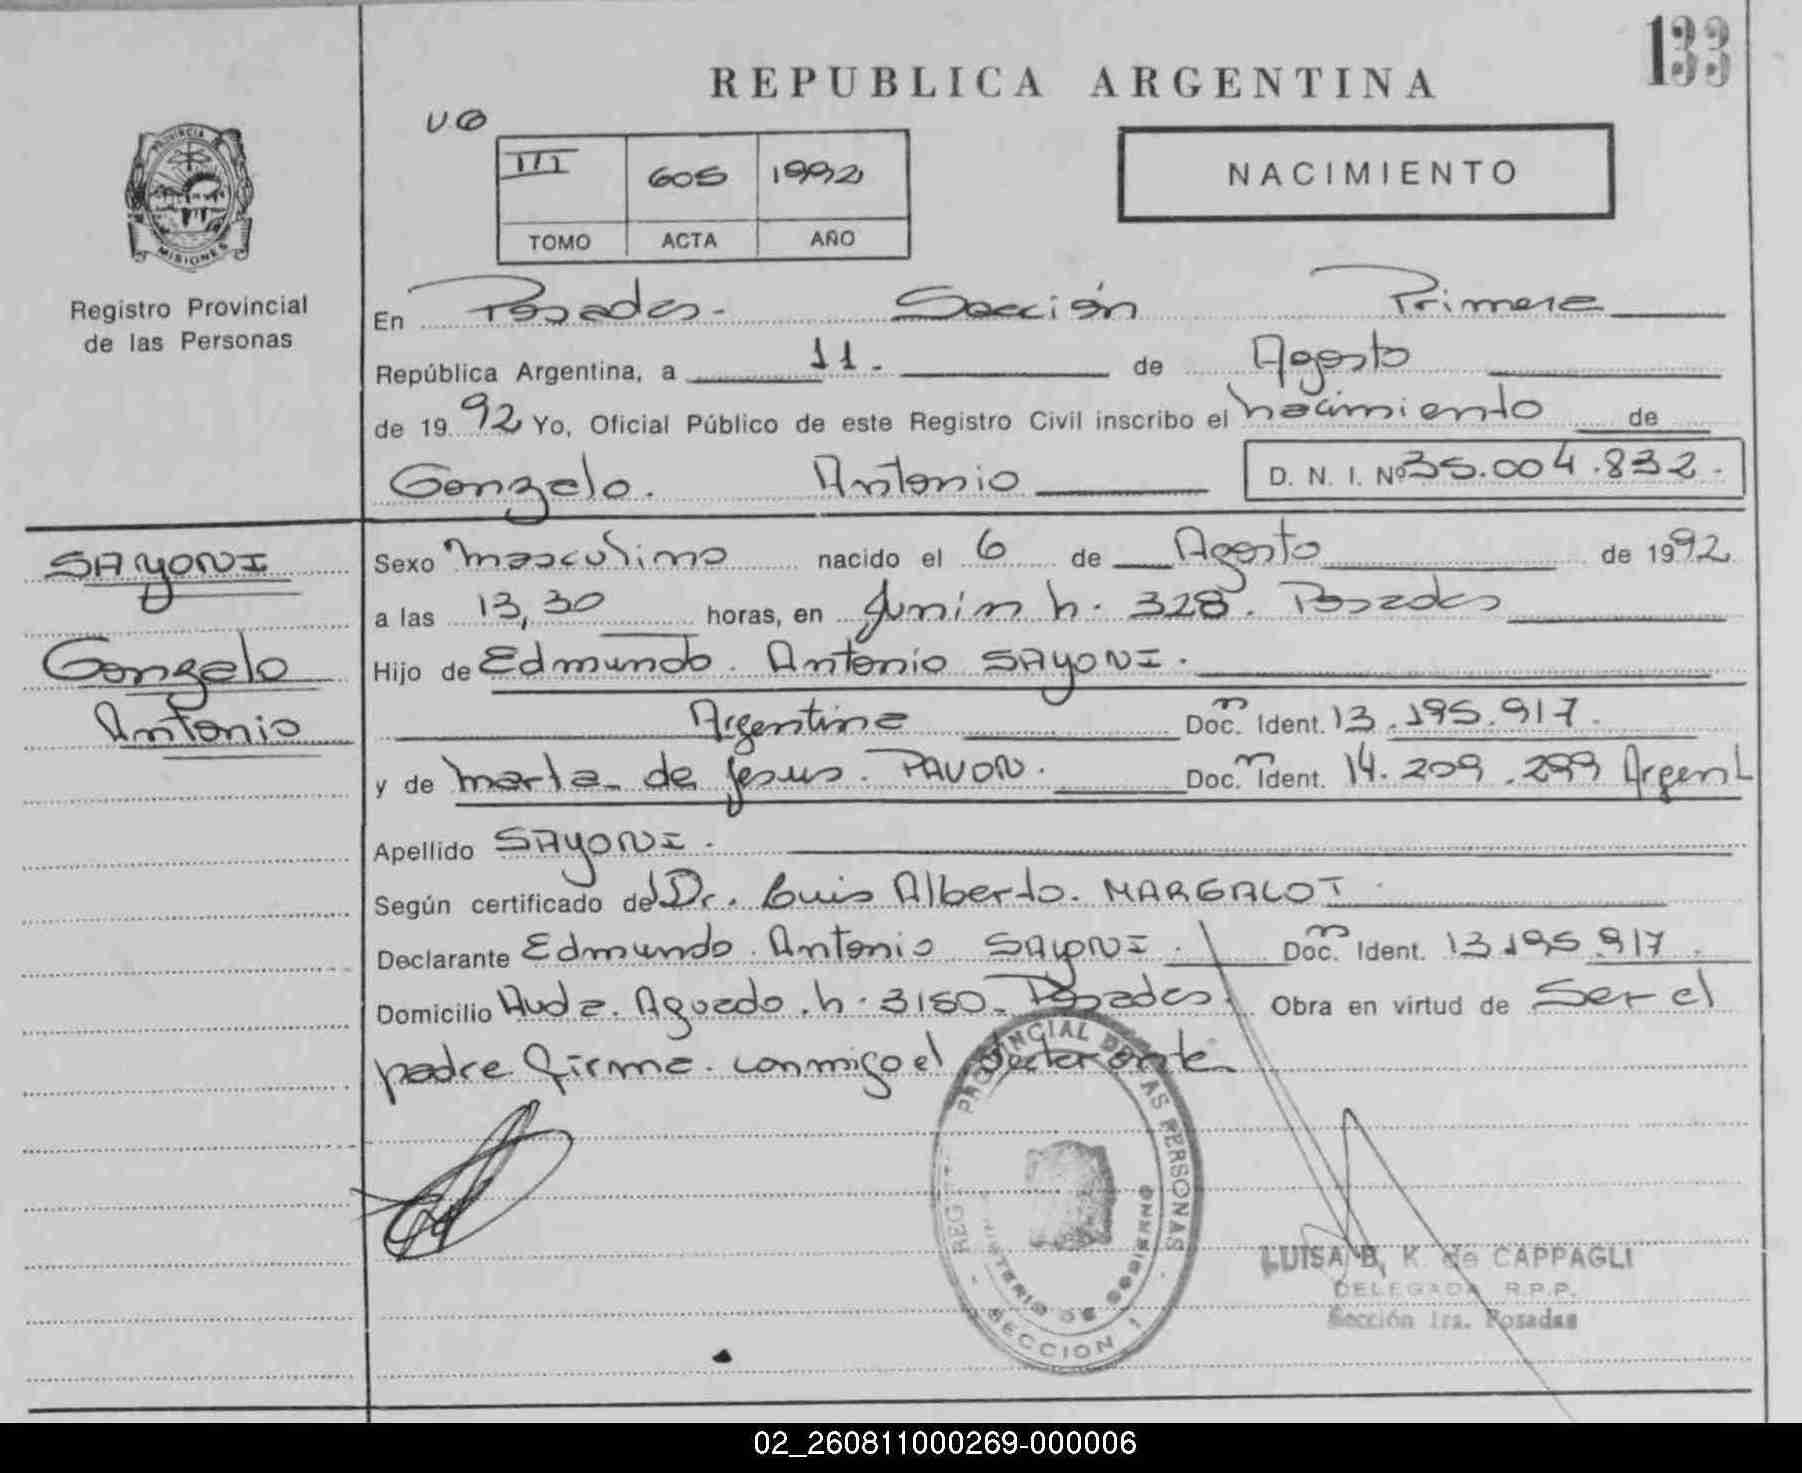 133
REPUBLICA ARGENTINA
PROVINCIA
MISIONES
Registro Provincial
de las Personas
III 605 1992
TOMO ACTA AÑO
NACIMIENTO
En Posadas. Sección Primera
República Argentina, a 11. de Agosto
de 1992 Yo, Oficial Público de este Registro Civil inscribo el nacimiento de
Gonzalo. Antonio D. N. I. Nº 35.004.832.
SAYONI
Gonzalo
Antonio
Sexo masculino nacido el 6 de Agosto de 1992
a las 13,30 horas, en Junín n. 328. Posadas
Hijo de Edmundo. Antonio SAYONI.
Argentina Doc. Ident. 13.195.917.
y de Marta de Jesus. PAVON. Doc. Ident. 14.209.299 Argent
Apellido SAYONI.
Según certificado del Dr. Luis Alberto. MARGALOT
Declarante Edmundo. Antonio SAYONI. Doc. Ident. 13.195.917.
Domicilio Avda. Aguado. n. 3150. Posadas. Obra en virtud de Ser el
padre firma. conmigo el declarante
PROVINCIAL DE LAS PERSONAS
MINISTERIO DE GOBIERNO
SECCION 1
LUISA B. K. de CAPPAGLI
DELEGADA R.P.P.
Sección 1ra. Posadas
02_260811000269-000006